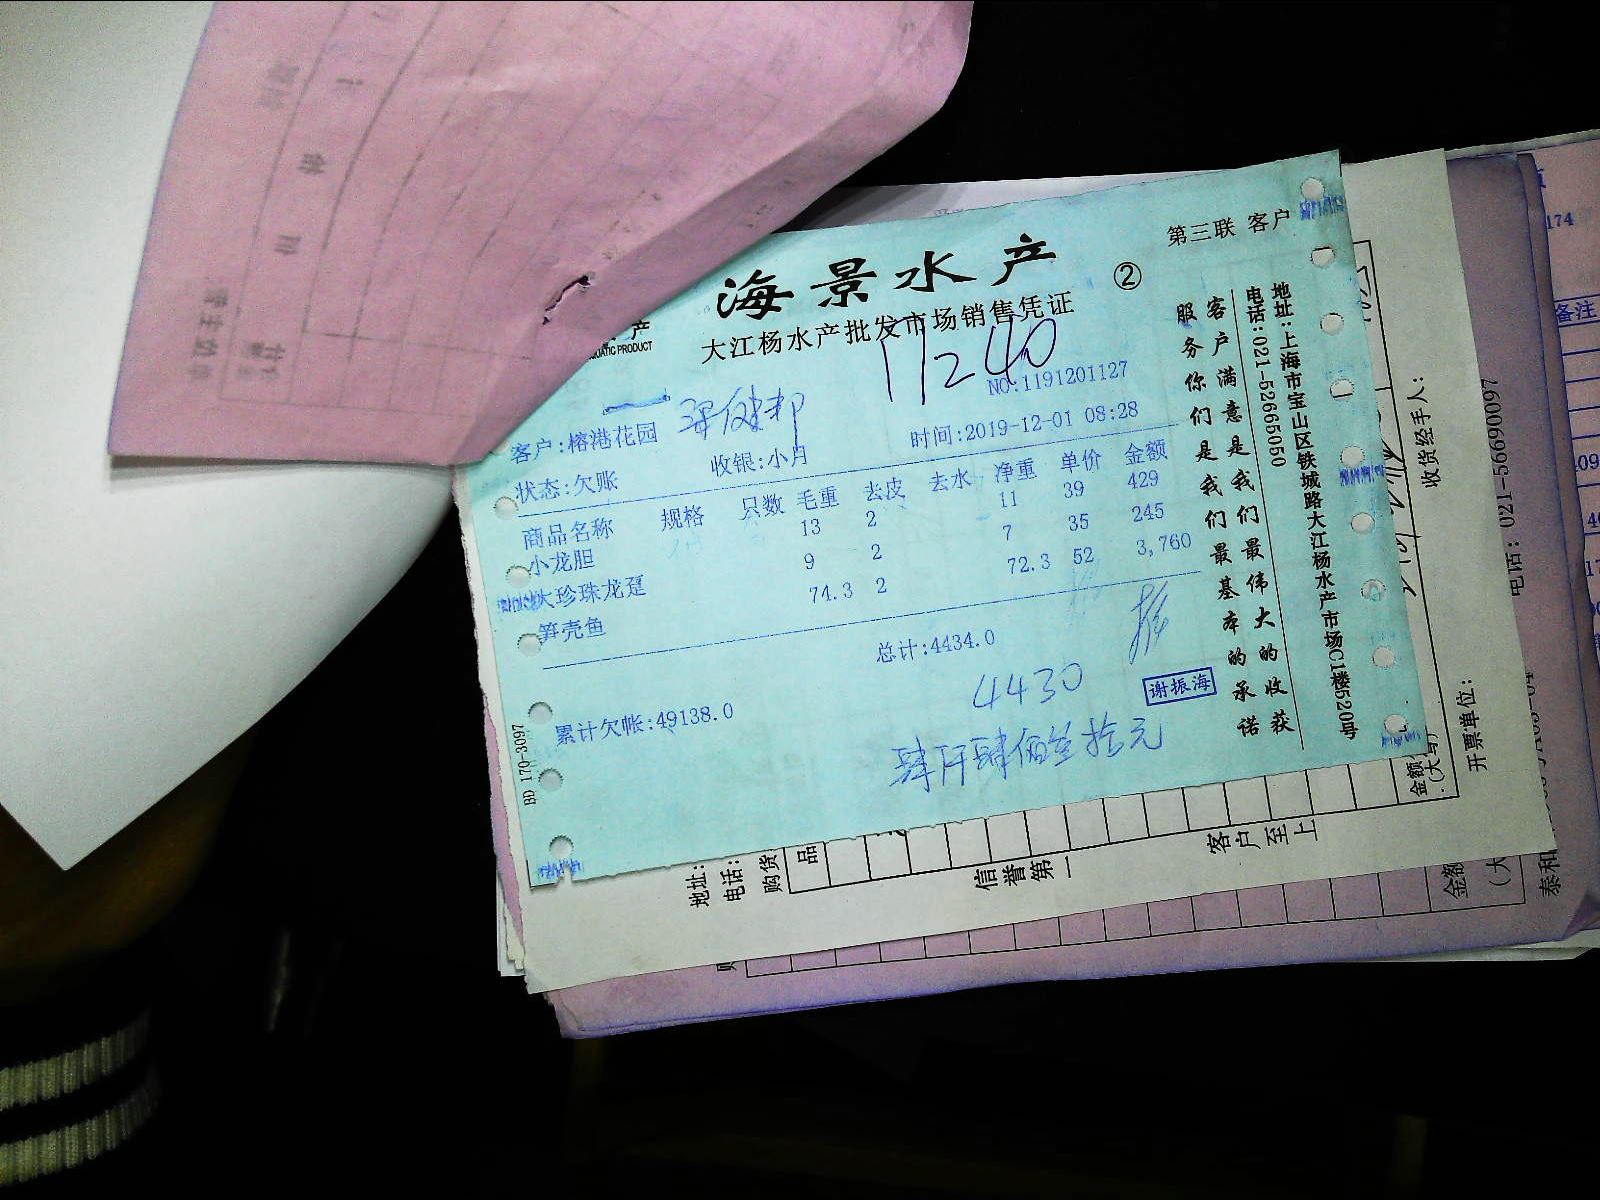 第三联 客户
海景水产
②
产
QUATIC PRODUCT
大江杨水产批发市场销售凭证
11240
NO:1191201127
客户:榕港花园
时间:2019-12-01 08:28
状态:欠账
收银:小月
商品名称 规格 只数 毛重 去皮 去水 净重 单价 金额
小龙胆 13 2 11 39 429
大珍珠龙趸 9 2 7 35 245
笋壳鱼 74.3 2 72.3 52 3,760
总计:4434.0
4430
谢振海
累计欠帐:49138.0
肆仟肆佰叁拾元
BD 170-3097
客户满意是我们最伟大的收获
服务你们是我们最基本的承诺
地址:上海市宝山区铁城路大江杨水产市场C1楼520号
电话:021-52665050
收货经手人:
电话: 021-56690097
开票单位:
金额
(大写)
地址:
电话:
购货
品
信誉第一
客户至上
备注
174
金额
(大
泰和